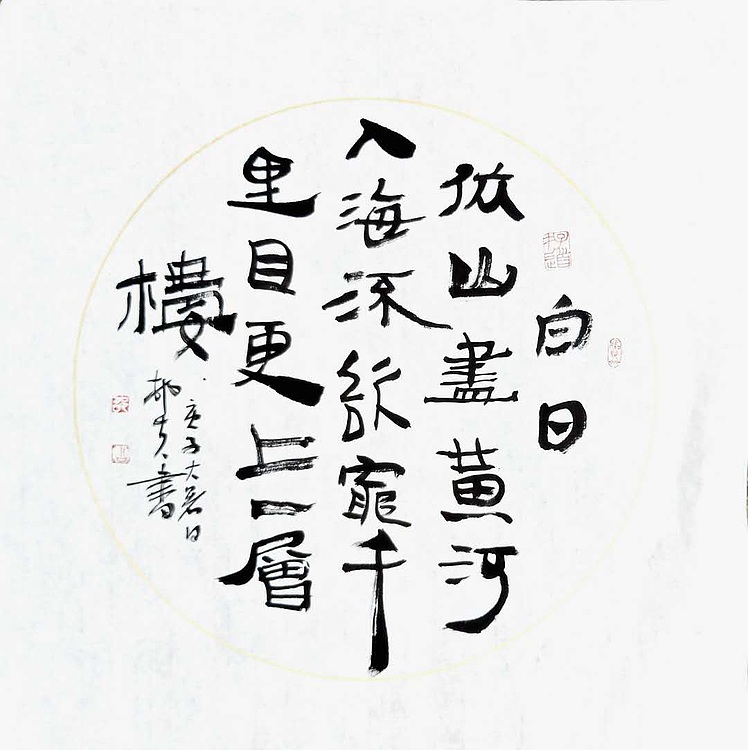 白日
依山盡黄河
入海流欲窮千
里目更上一層
樓
庚子大暑日
書